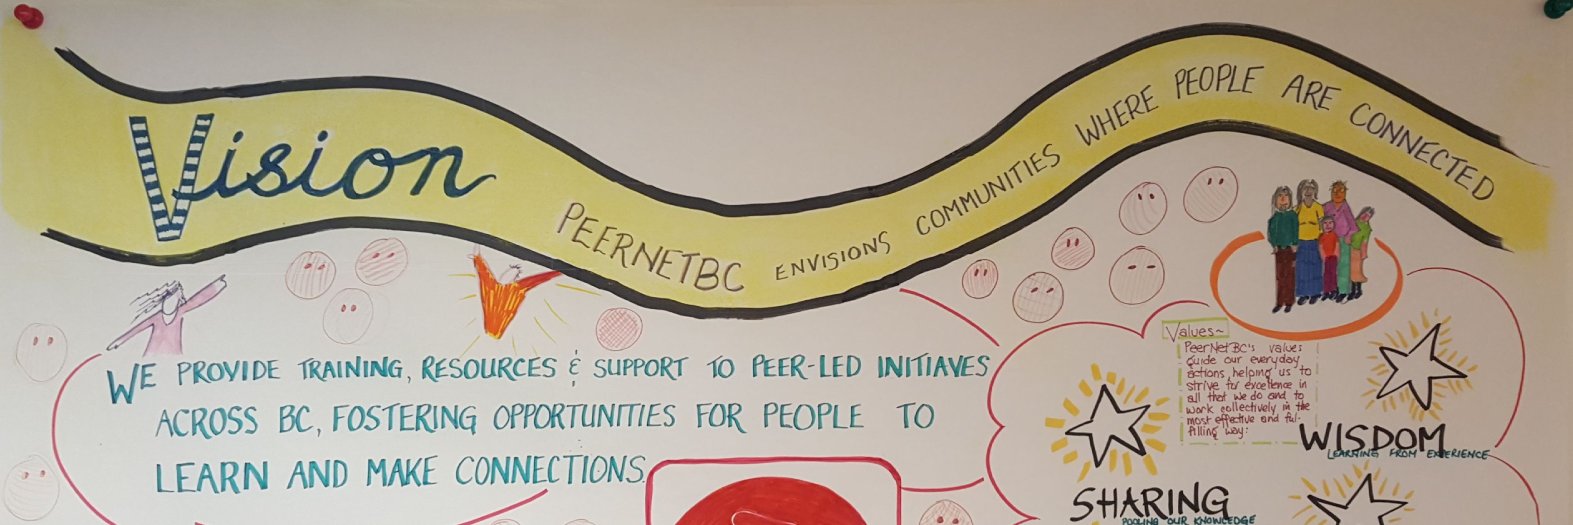 Vision
PEERNETBC ENVISIONS COMMUNITIES WHERE PEOPLE ARE CONNECTED
WE PROVIDE TRAINING, RESOURCES & SUPPORT TO PEER-LED INITIAVES
ACROSS BC, FOSTERING OPPORTUNITIES FOR PEOPLE TO
LEARN AND MAKE CONNECTIONS.
Values~
PeerNetBC's values
guide our everyday
actions, helping us to
strive for excellence in
all that we do and to
work collectively in the
most effective and ful-
filling way:
WISDOM
LEARNING FROM EXPERIENCE
SHARING
POOLING OUR KNOWLEDGE